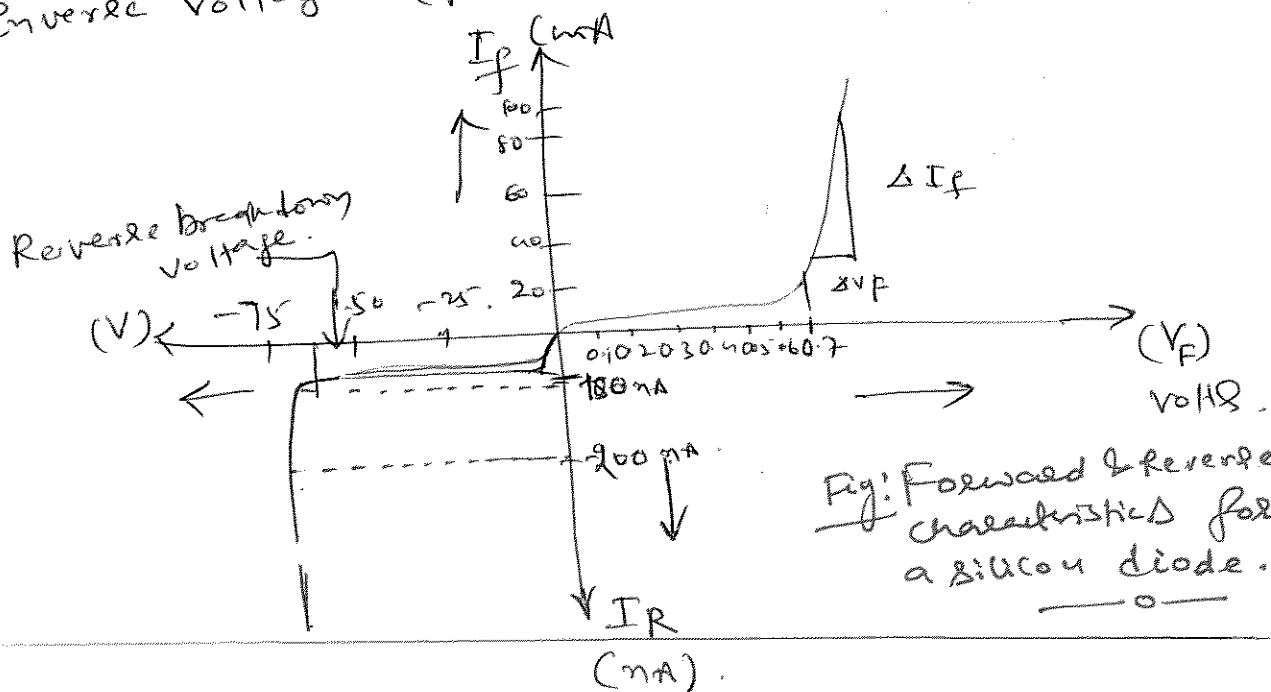 Inverse Voltage
If (mA
100
80
60
40
20
Reverse breakdown
voltage.
ΔIf
ΔVF
(V)
-75
-50
-25.
0.1 0.2 0.3 0.4 0.5 0.6 0.7
(VF)
volts.
-100 nA
-200 nA
IR
(nA).
Fig: Forward & Reverse
characteristics for
a silicon diode.